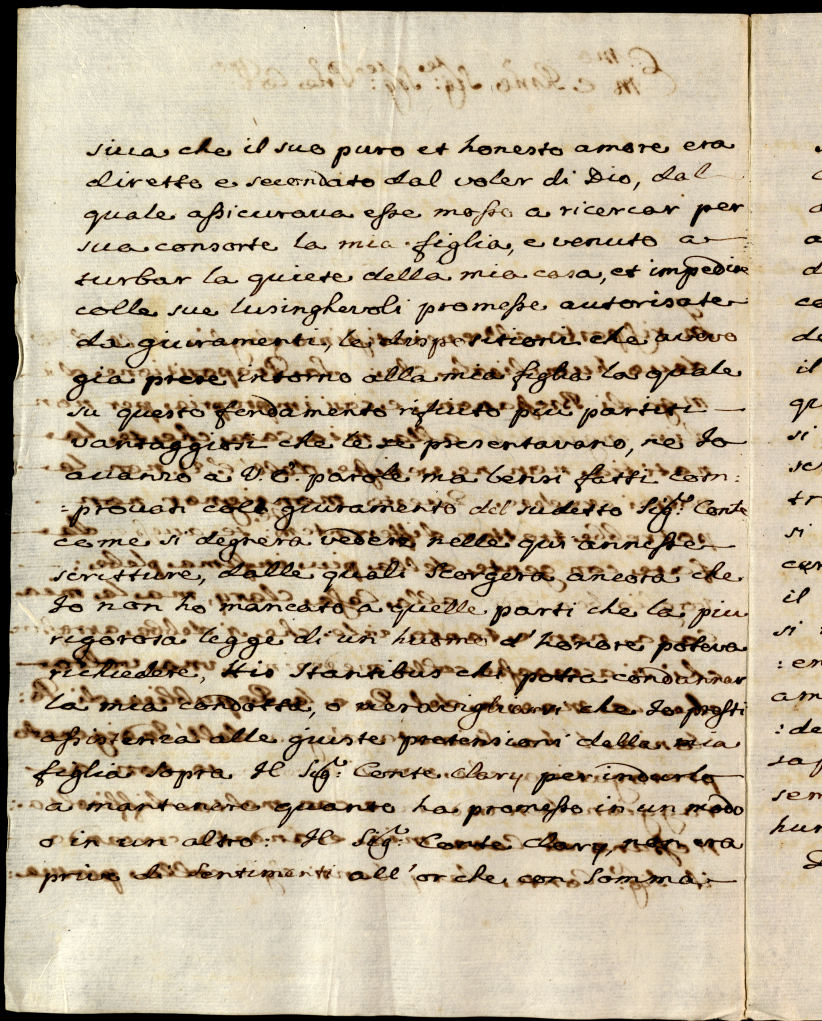 siua che il suo puro et honesto amore era
diretto e secondato dal voler di Dio, dal
quale assicuraua esse mosso a ricercar per
sua consorte la mia figlia, e venuto a
turbar la quiete della mia casa, et impedire
colle sue lusingheuoli promesse autorisate
da giuramenti, le dispositioni che auevo
gia prese intorno alla mia figlia la quale
su questo fondamento rifiuto piu partiti
vantaggiosi che le se presentavano, ne Io
auanzo a V. E. parole ma bensi fatti com:
:prouati col giuramento del sudetto Sigr. Conte
come si degnera vedere nelle qui annesse
scritture, dalle quali scorgera ancora che
Io non ho mancato a quelle parti che la piu
rigorosa legge di un huomo d'honore poteva
richiedere, His Stantibus chi potra condannar
la mia condotta, o merauigliarsi che Io presti
assistenza alle giuste pretensioni della mia
figlia sopra Il Sigr. Conte Clary per indurlo
a mantenere quanto ha promesso in un modo
o in un altro: Il Sigr. Conte Clary, non era
priuo di Sentimenti all'or che, con Somma